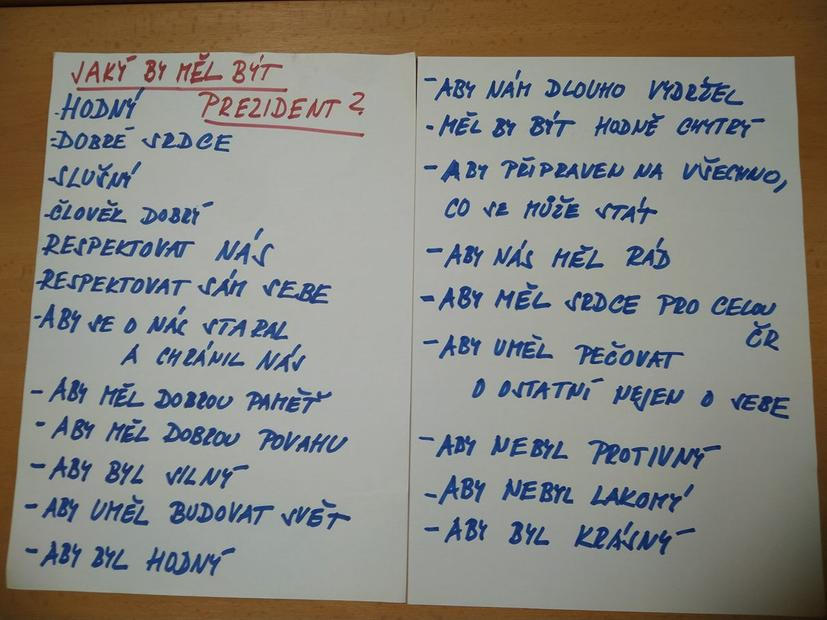 JAKÝ BY MĚL BÝT
PREZIDENT?
-HODNÝ
-DOBRÉ SRDCE
-SLUŠNÝ
-ČLOVĚK DOBRÝ
-RESPEKTOVAT NÁS
-RESPEKTOVAT SÁM SEBE
-ABY SE O NÁS STARAL
A CHRÁNIL NÁS
- ABY MĚL DOBROU PAMĚŤ
- ABY MĚL DOBROU POVAHU
- ABY BYL SILNÝ
- ABY UMĚL BUDOVAT SVĚT
- ABY BYL HODNÝ
- ABY NÁM DLOUHO VYDRŽEL
- MĚL BY BÝT HODNĚ CHYTRÝ
- ABY PŘIPRAVEN NA VŠECHNO,
CO SE MŮŽE STÁT
- ABY NÁS MĚL RÁD
- ABY MĚL SRDCE PRO CELOU
ČR
- ABY UMĚL PEČOVAT
O OSTATNÍ NEJEN O SEBE
- ABY NEBYL PROTIVNÝ
- ABY NEBYL LAKOMÝ
- ABY BYL KRÁSNÝ